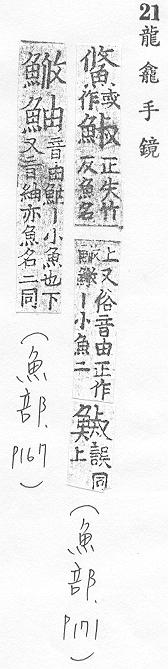 21龍龕手鏡
鯈或作鮛正失竹反魚名
上又俗音由正作丨小魚二
誤同上
(魚部.P171)
鮋音由丨小魚也下又音紬亦魚名二同
(魚部.P167)